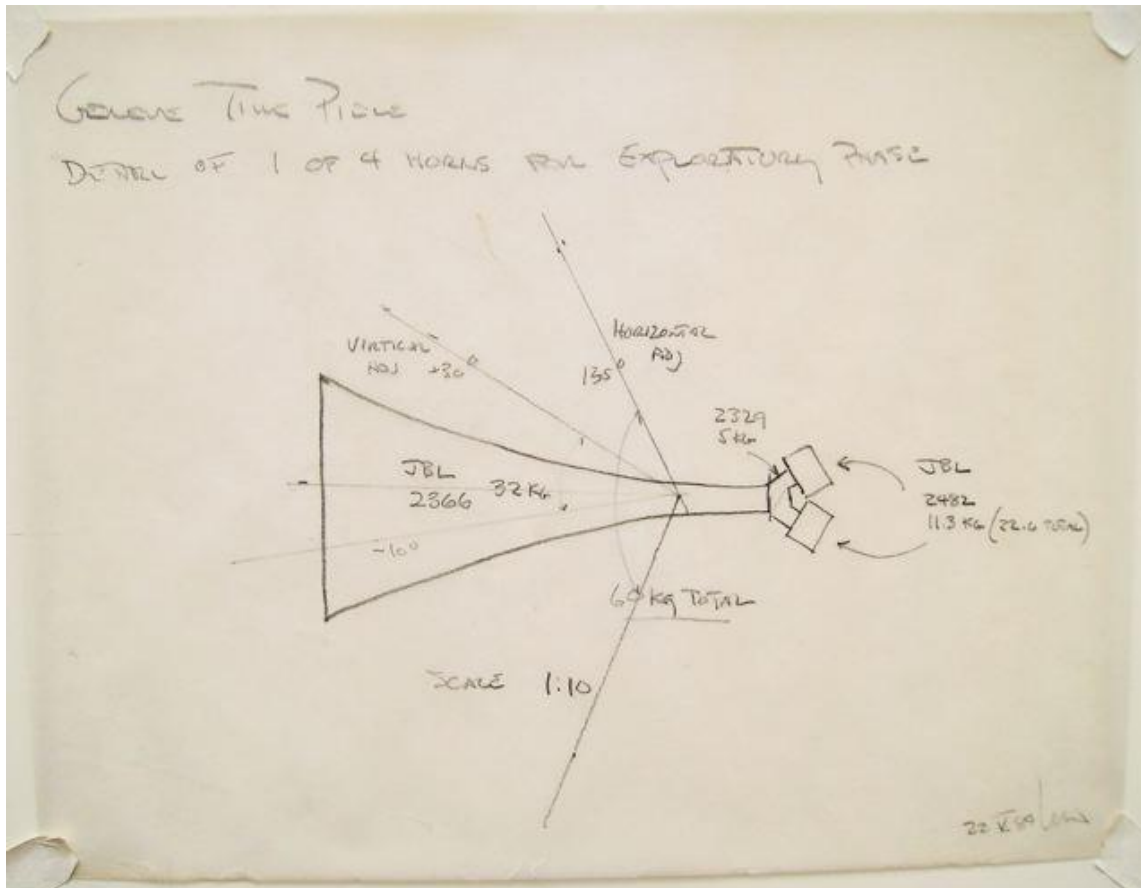 GENEVE TIME PIECE
DETAIL OF 1 OF 4 HORNS FOR EXPLORATORY PHASE
HORIZONTAL
ADJ
135°
VIRTICAL
ADJ +30°
2329
5 KG
JBL
2366 32 KG
JBL
2482
11.3 KG (22.6 TOTAL)
-10°
60 KG TOTAL
SCALE 1:10
22